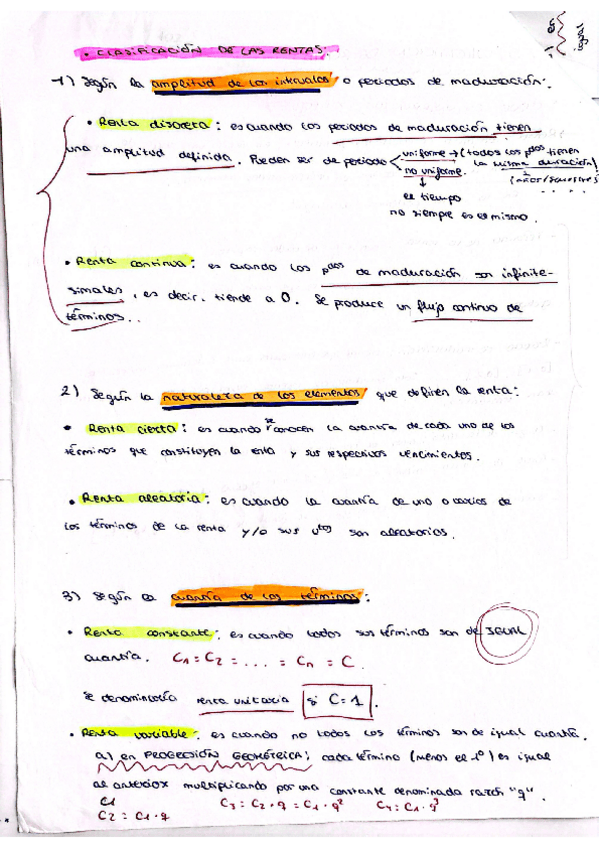 igual
• CLASIFICACIÓN DE LAS RENTAS:
1) Según la amplitud de los intervalos o periodos de maduración:
• Renta discreta: es cuando los periodos de maduración tienen
una amplitud definida. Pueden ser de periodo
uniforme → (todos los pdos tienen
la misma duración)
(años/semestres)
no uniforme.
↓
el tiempo
no siempre es el mismo.
• Renta continua: es cuando los pdos de maduración son infinite-
simales, es decir, tiende a 0. Se produce un flujo continuo de
términos..
2) Según la naturaleza de los elementos que definen la renta:
• Renta cierta: es cuando se conocen la cuantía de cada uno de los
términos que constituyen la renta y sus respectivos vencimientos.
• Renta aleatoria: es cuando la cuantía de uno o varios de
los términos de la renta y/o sus vtos son aleatorios.
3) Según la cuantía de los términos:
• Renta constante: es cuando todos sus términos son de IGUAL
cuantía. C1 = C2 = ... = Cn = C.
Se denominaría renta unitaria si C=1.
• Renta variable: es cuando no todos los términos son de igual cuantía.
a) en PROGRESIÓN GEOMÉTRICA: cada término (menos el 1º) es igual
al anterior multiplicando por una constante denominada razón "q".
C1
C2 = C1·q
C3 = C2·q = C1·q²
C4 = C1·q³